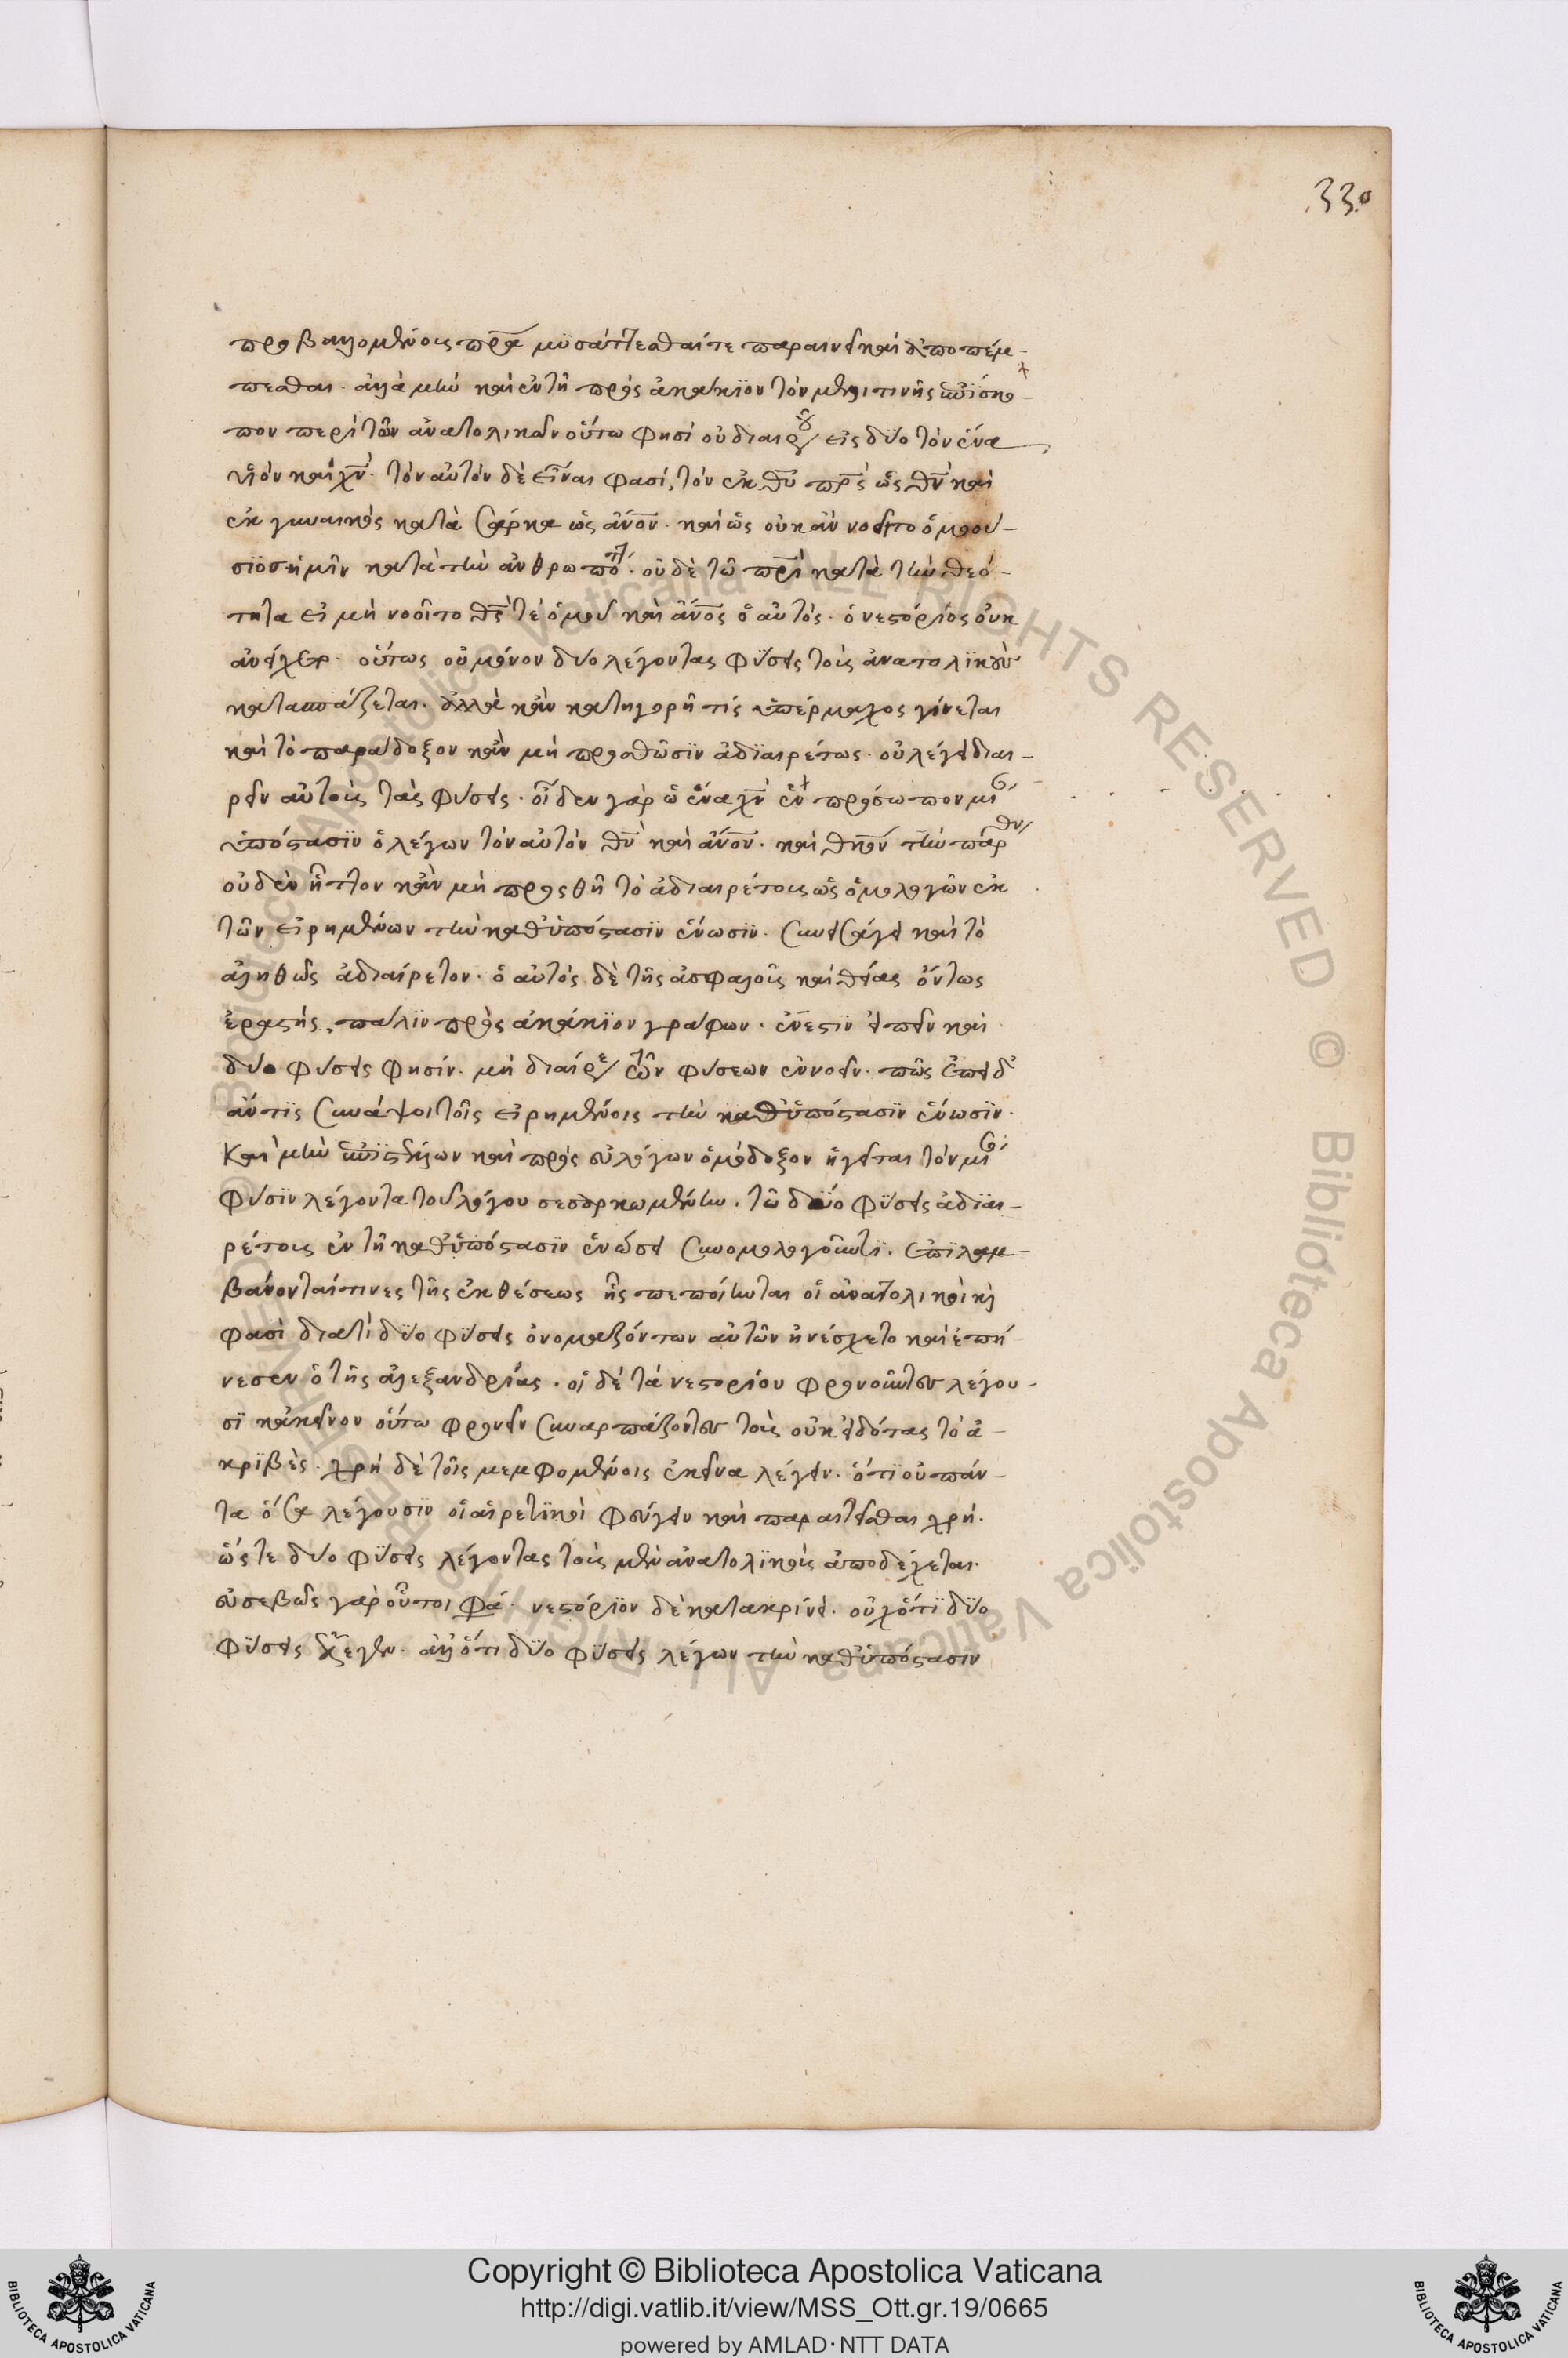 330
προβαλλομένοις πρᾶ μυσάττεσθαί τε παραινεῖ καὶ ἀποπέμ-
πεσθαι. ἀλλὰ μὴν καὶ ἐν τῇ πρὸς ἀκάκιον τὸν μελιτινῆς ἐπίσκο-
πον περὶ τῶν ἀνατολικῶν οὕτω φησὶ οὐ διαιροῦ εἰς δύο τὸν ἕνα
υἱὸν καὶ χν. τὸν αὐτὸν δὲ εἶναι φασί, τὸν ἐκ θυ πρς ὡς θν καὶ
ἐκ γυναικὸς κατὰ σάρκα ὡς ανον. καὶ ὡς οὐκ ἂν νοεῖτο ὁμοού-
σϊος ἡμῖν κατὰ τὴν ἀνθρωπότη. οὐδὲ τῶ πρι κατὰ τὴν θεό-
τητα εἰ μὴ νοοῖτο θς τὲ ὁμοῦ καὶ ανος ὁ αὐτός. ὁ νεστόριος οὐκ
ἀνείχετο. οὕτως οὐ μόνον δυο λέγοντας φύσεις τοὺς ἀνατολϊκοὺς
κατασπάζεται. ἀλλὰ κἂν κατηγορῆ τίς ὑπέρμαχος γίνεται
καὶ τὸ παράδοξον κἂν μὴ προσθῶσϊν ἀδϊαιρέτως. οὐ λέγει διαι-
ρεῖν αὐτοὺς τὰς φύσεις. οἶδεν γὰρ ὡς ἕνα χν ἓν πρόσωπον μί
ὑπόστασϊν ὁ λέγων τὸν αὐτὸν θν καὶ ανον. καὶ θκον τὴν παρθν
οὐδὲν ἧττον κἂν μὴ προσθῆ τὸ ἀδιαιρέτοις ὡς ὁμολογῶν ἐκ
τῶν εἰρημένων τὴν καθ' ὑπόστασϊν ἕνωσϊν. συνεισάγει καὶ τὸ
ἀληθῶς ἀδιαίρετον. ὁ αὐτὸς δὲ τῆς ἀσφαλοῦς καὶ θείας ὄντως
ἐραστής, πάλϊν πρὸς ἀκάκϊον γράφων. ἔνεστϊν εἰπεῖν καὶ
δύο φύσεις φησίν. μὴ διαίρε τῶν φύσεων ἐννοεῖν. πῶς ἐπειδ
ἄντϊς συνάψοι τοῖς εἰρημένοις τὴν καθ' ὑπόστασϊν ἕνωσϊν.
Καὶ μὴν ἐπϊστέλλων καὶ πρὸς εὐλόγιον ὁμόδοξον ἡγεῖται τὸν μί
φύσϊν λέγοντα τοῦ λόγου σεσαρκωμένην. τῶ δύο φύσεις ἀδϊαι-
ρέτοις ἐν τῆ καθ' ὑπόστασϊν ἑνώσει συνομολογοῦντϊ. ἐπϊλαμ-
βάνονταί τινες τῆς ἐκθέσεως ἧς πεποίηνται οἱ ἀνατολικοὶ καὶ
φασὶ διατί δύο φύσεις ὀνομαζόντων αὐτῶν ἠνέσχετο καὶ ἐπή-
νεσεν ὁ τῆς ἀλεξανδρίας. οἱ δὲ τὰ νεστορίου φρονοῦντες λέγου-
σϊ κἀκεῖνον οὕτω φρονεῖν συναρπάζοντες τοὺς οὐκ εἰδότας τὸ ἀ-
κρϊβές. χρὴ δὲ τοῖς μεμφομένοις ἐκεῖνα λέγειν. ὅτϊ οὐ πάν-
τα ὅσα λέγουσϊν οἱ αἱρετϊκοὶ φεύγειν καὶ παραιτεῖσθαι χρή.
ὥστε δύο φύσεις λέγοντας τοὺς μὲν ἀνατολϊκοὺς ἀποδέχεται.
εὐσεβῶς γὰρ οὗτοι φα. νεστόρϊον δὲ κατακρίνει. οὐχ ὅτϊ δύο
φύσεις ἔλεγεν. ἀλλ' ὅτι δύο φύσεις λέγων τὴν καθ' ὑπόστασϊν
Copyright © Biblioteca Apostolica Vaticana
http://digi.vatlib.it/view/MSS_Ott.gr.19/0665
powered by AMLAD·NTT DATA